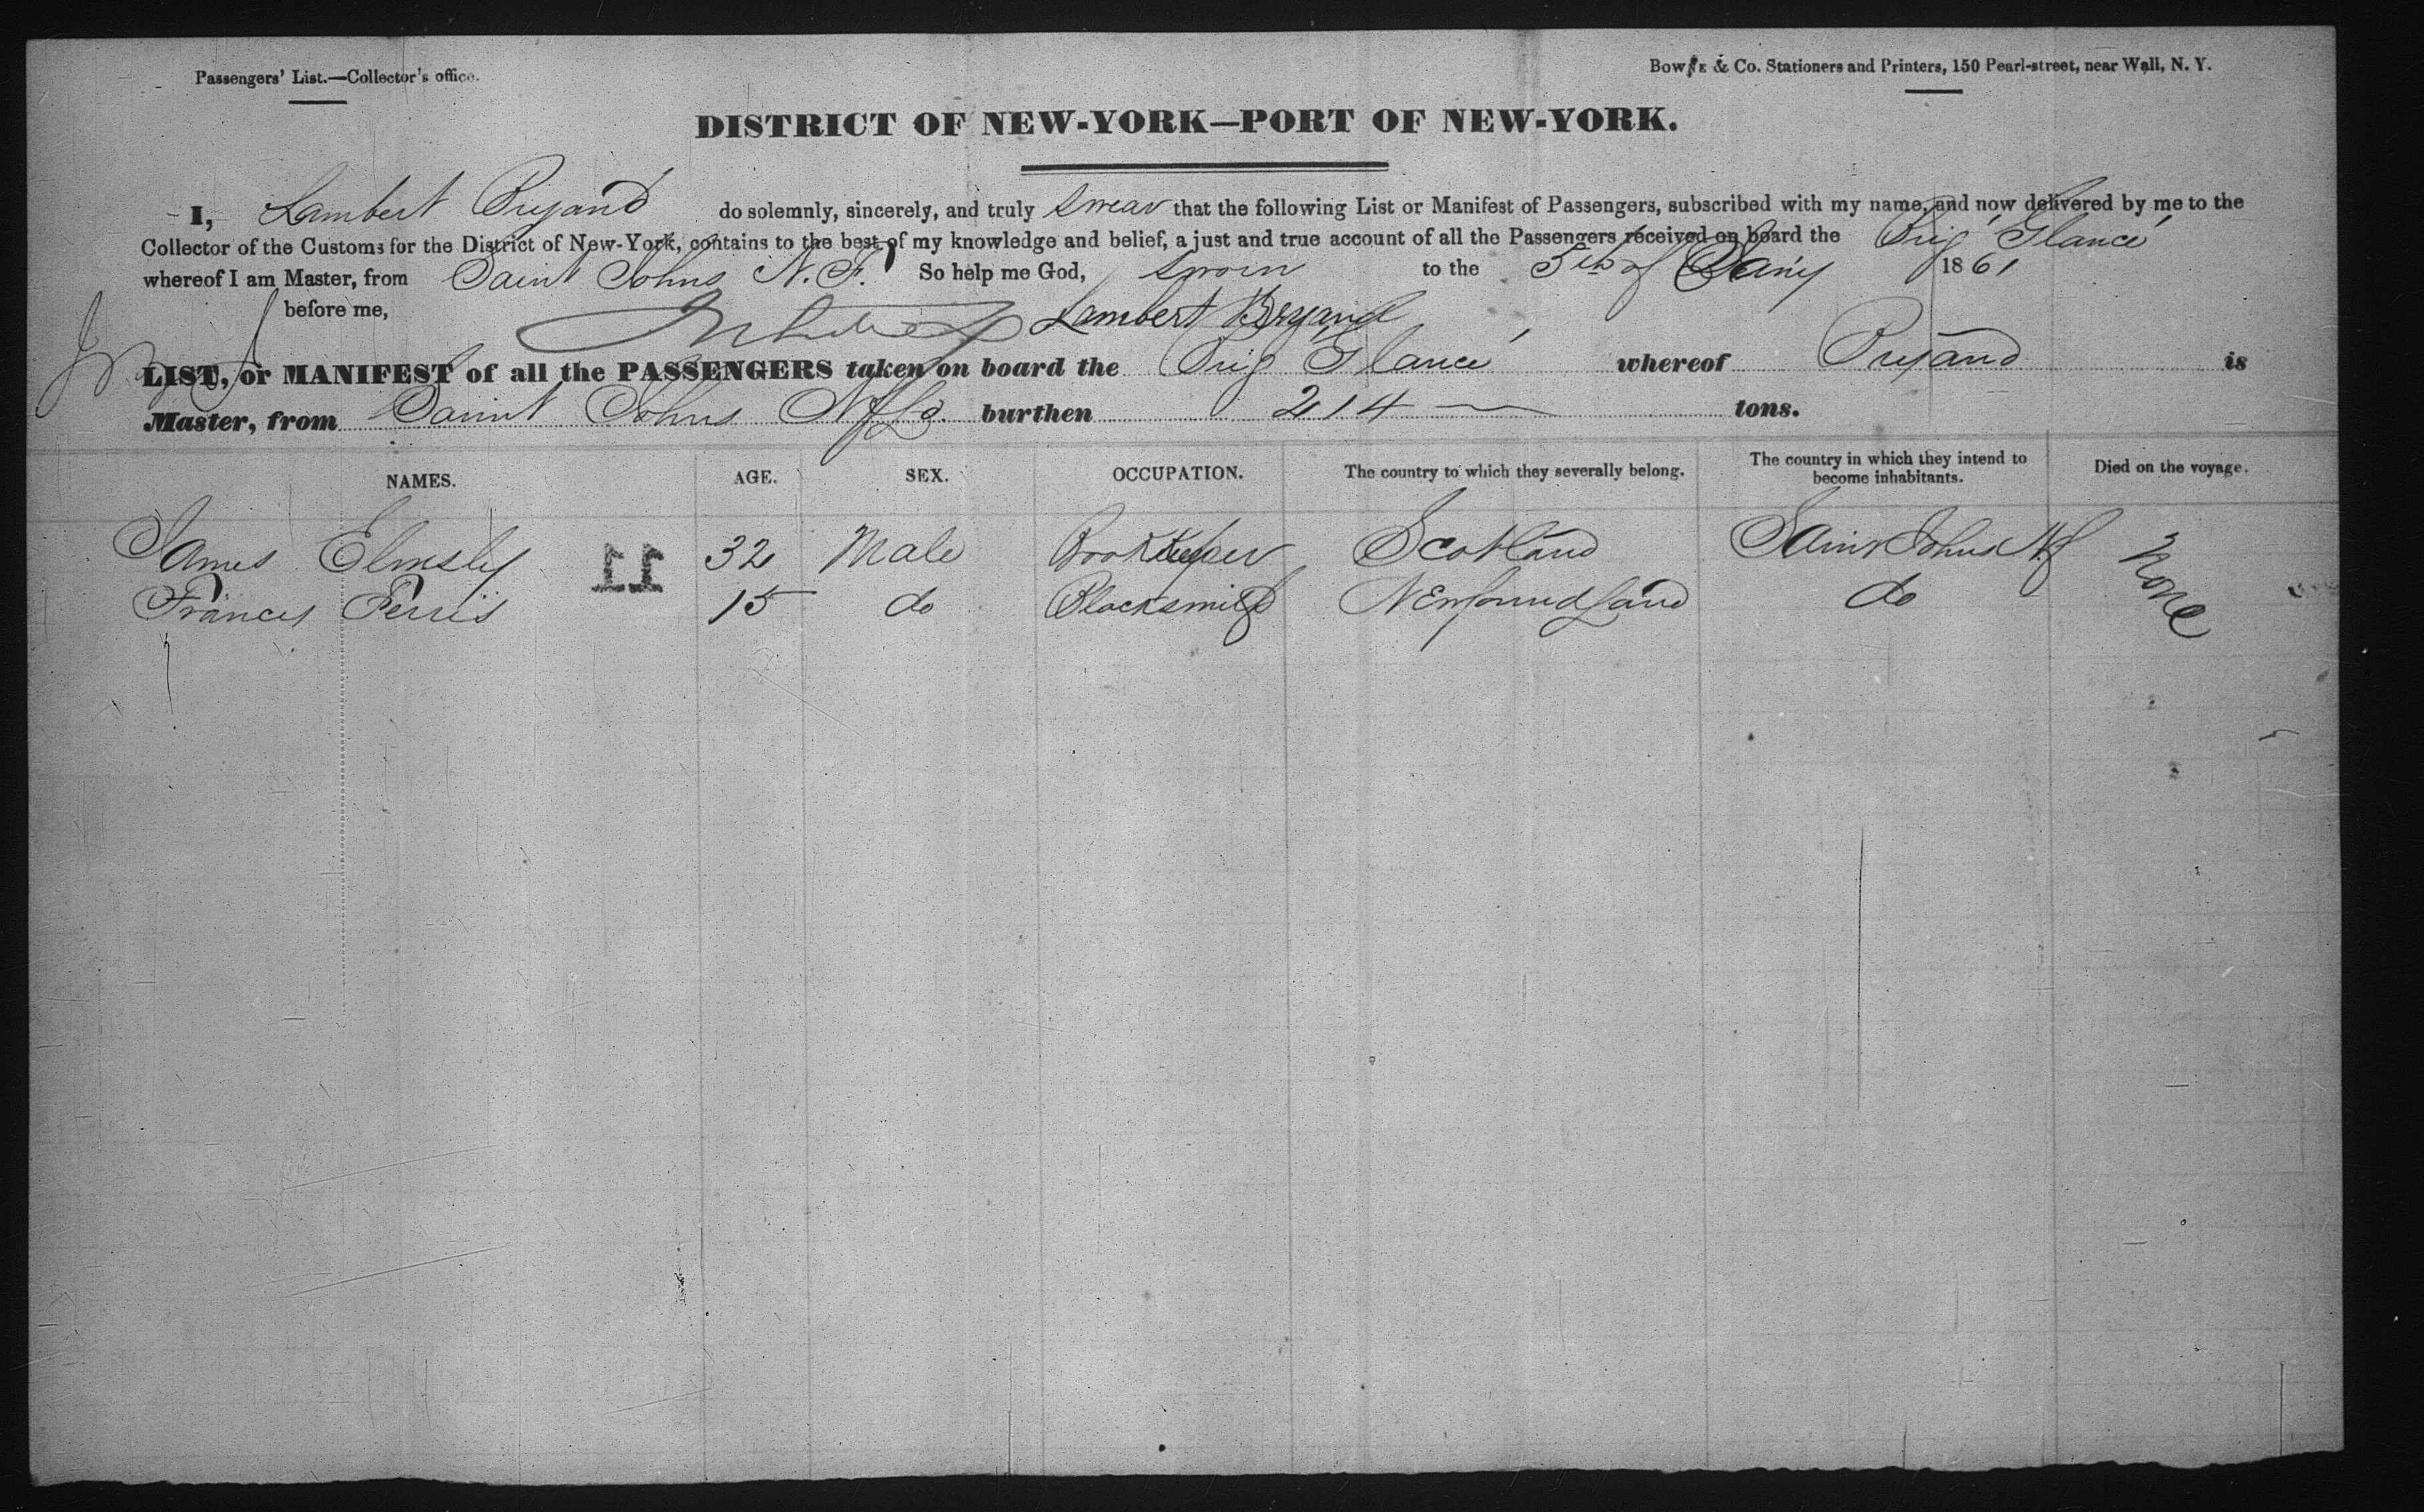 Passengers' List.—Collector's office.
Bowne & Co. Stationers and Printers, 150 Pearl-street, near Wall, N. Y.
DISTRICT OF NEW-YORK—PORT OF NEW-YORK.
I, Lambert Bryand do solemnly, sincerely, and truly swear that the following List or Manifest of Passengers, subscribed with my name, and now delivered by me to the
Collector of the Customs for the District of New-York, contains to the best of my knowledge and belief, a just and true account of all the Passengers received on board the Brig "Glance"
whereof I am Master, from Saint Johns N. F. So help me God, sworn to the 5th of Jany 1861
before me, Lambert Bryand
LIST, or MANIFEST of all the PASSENGERS taken on board the Brig "Glance" whereof Bryand is
Master, from Saint Johns Nfld. burthen 214 — tons.
NAMES. AGE. SEX. OCCUPATION. The country to which they severally belong. The country in which they intend to become inhabitants. Died on the voyage.
James Elmsly 11 32 Male Bookkeeper Scotland Saint Johns Nf None
Francis Perris 15 do Blacksmith Newfoundland do